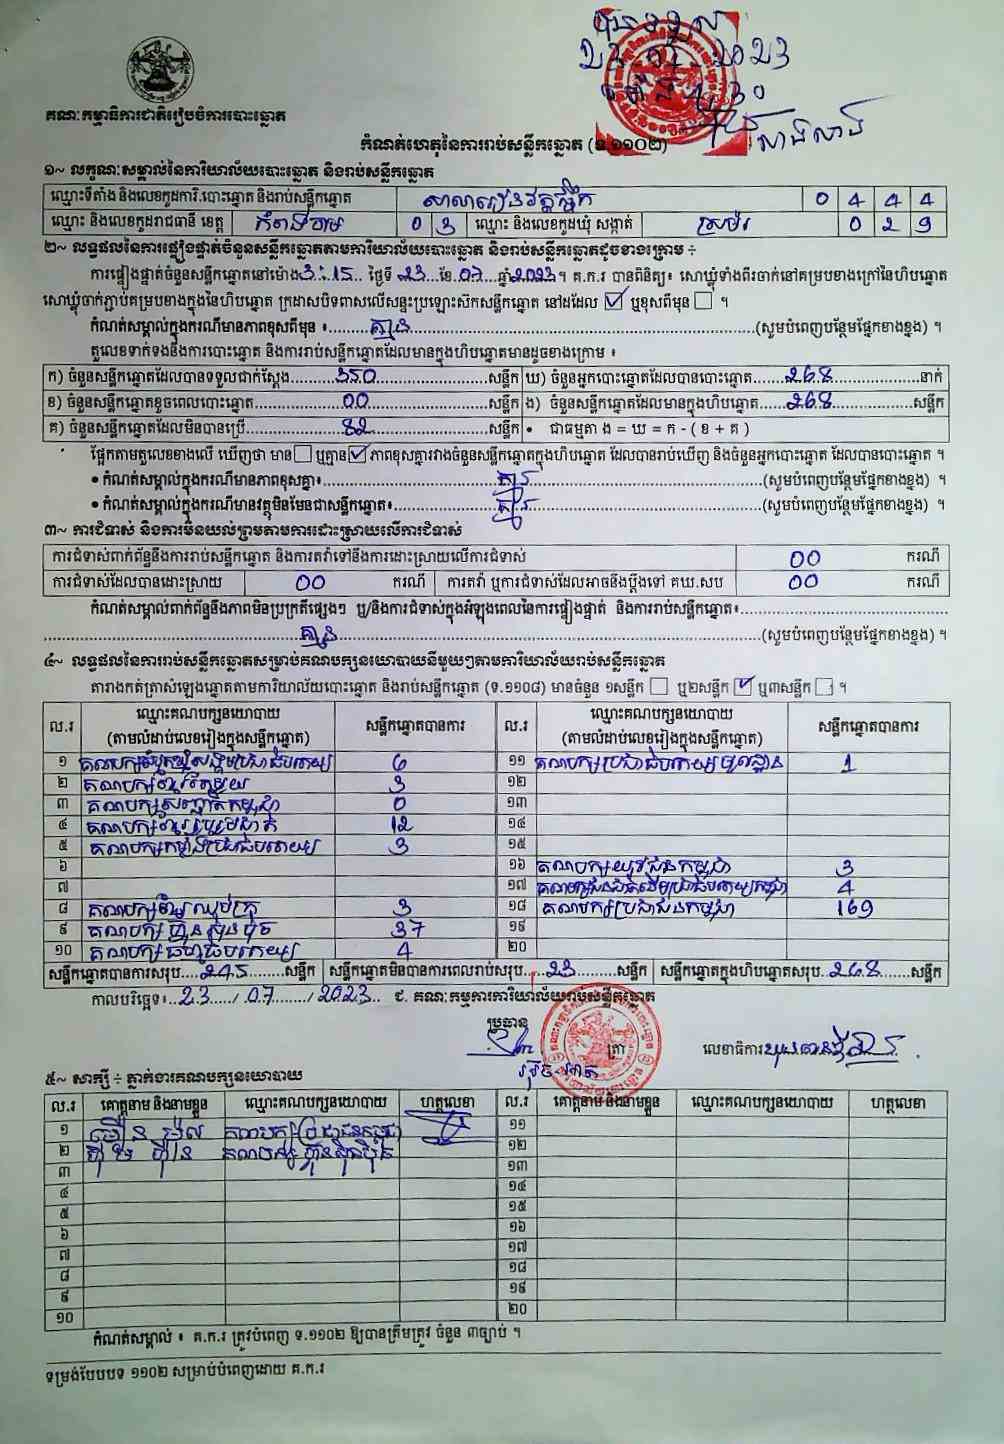 បានទទួល
23.07.2023
ម៉ោង 4:30
គណៈកម្មាធិការជាតិរៀបចំការបោះឆ្នោត
កំណត់ហេតុនៃការរាប់សន្លឹកឆ្នោត (ទ.១១០២)
១~ លក្ខណៈសម្គាល់នៃការិយាល័យបោះឆ្នោត និងរាប់សន្លឹកឆ្នោត
ឈ្មោះទីតាំង និងលេខកូដការិ.បោះឆ្នោត និងរាប់សន្លឹកឆ្នោត 0 4 4 4
ឈ្មោះ និងលេខកូដរាជធានី ខេត្ត កំពង់ចាម 0 3 ឈ្មោះ និងលេខកូដឃុំ សង្កាត់ 0 2 9
២~ លទ្ធផលនៃការផ្ទៀងផ្ទាត់ចំនួនសន្លឹកឆ្នោតតាមការិយាល័យបោះឆ្នោត និងរាប់សន្លឹកឆ្នោតដូចខាងក្រោម ÷
ការផ្ទៀងផ្ទាត់ចំនួនសន្លឹកឆ្នោតនៅម៉ោង 3:15 ថ្ងៃទី 23 ខែ 07 ឆ្នាំ 2023 ។ គ.ក.រ បានពិនិត្យ៖ សោឃ្លុំទាំងពីរចាក់នៅគម្របខាងក្រៅនៃហិបឆ្នោត
សោឃ្លុំចាក់ភ្ជាប់គម្របខាងក្នុងនៃហិបឆ្នោត ក្រដាសបិទពាសលើសន្ទះប្រឡោះសឹកសន្លឹកឆ្នោត នៅដដែល ☑ ឬខុសពីមុន ☐ ។
កំណត់សម្គាល់ក្នុងករណីមានភាពខុសពីមុន ៖ គ្មាន (សូមបំពេញបន្ថែមផ្នែកខាងខ្នង) ។
តួលេខទាក់ទងនឹងការបោះឆ្នោត និងការរាប់សន្លឹកឆ្នោតដែលមានក្នុងហិបឆ្នោតមានដូចខាងក្រោម ៖
ក) ចំនួនសន្លឹកឆ្នោតដែលបានទទួលជាក់ស្តែង 350 សន្លឹក ឃ) ចំនួនអ្នកបោះឆ្នោតដែលបានបោះឆ្នោត 268 នាក់
ខ) ចំនួនសន្លឹកឆ្នោតខូចពេលបោះឆ្នោត 00 សន្លឹក ង) ចំនួនសន្លឹកឆ្នោតដែលមានក្នុងហិបឆ្នោត 268 សន្លឹក
គ) ចំនួនសន្លឹកឆ្នោតដែលមិនបានប្រើ 82 សន្លឹក • ជាធម្មតា ង = ឃ = ក - ( ខ + គ )
ផ្អែកតាមតួលេខខាងលើ ឃើញថា មាន ☐ ឬគ្មាន ☑ ភាពខុសគ្នារវាងចំនួនសន្លឹកឆ្នោតក្នុងហិបឆ្នោត ដែលបានរាប់ឃើញ និងចំនួនអ្នកបោះឆ្នោត ដែលបានបោះឆ្នោត ។
• កំណត់សម្គាល់ក្នុងករណីមានភាពខុសគ្នា៖ គ្មាន (សូមបំពេញបន្ថែមផ្នែកខាងខ្នង) ។
• កំណត់សម្គាល់ក្នុងករណីមានវត្ថុមិនមែនជាសន្លឹកឆ្នោត៖ គ្មាន (សូមបំពេញបន្ថែមផ្នែកខាងខ្នង) ។
៣~ ការជំទាស់ និងការមិនយល់ព្រមតាមការដោះស្រាយលើការជំទាស់
ការជំទាស់ពាក់ព័ន្ធនឹងការរាប់សន្លឹកឆ្នោត និងការតវ៉ាទៅនឹងការដោះស្រាយលើការជំទាស់ 00 ករណី
ការជំទាស់ដែលបានដោះស្រាយ 00 ករណី ការតវ៉ា ឬការជំទាស់ដែលអាចនឹងប្តឹងទៅ គឃ.សប 00 ករណី
កំណត់សម្គាល់ពាក់ព័ន្ធនឹងភាពមិនប្រក្រតីផ្សេងៗ ឬ/និងការជំទាស់ក្នុងអំឡុងពេលនៃការផ្ទៀងផ្ទាត់ និងការរាប់សន្លឹកឆ្នោត៖
គ្មាន (សូមបំពេញបន្ថែមផ្នែកខាងខ្នង) ។
៤~ លទ្ធផលនៃការរាប់សន្លឹកឆ្នោតសម្រាប់គណបក្សនយោបាយនីមួយៗតាមការិយាល័យរាប់សន្លឹកឆ្នោត
តារាងកត់ត្រាសំឡេងឆ្នោតតាមការិយាល័យបោះឆ្នោត និងរាប់សន្លឹកឆ្នោត (ទ.១១០៨) មានចំនួន ១សន្លឹក ☐ ឬ២សន្លឹក ☑ ឬ៣សន្លឹក ☐ ។
ល.រ ឈ្មោះគណបក្សនយោបាយ (តាមលំដាប់លេខរៀងក្នុងសន្លឹកឆ្នោត) សន្លឹកឆ្នោតបានការ ល.រ ឈ្មោះគណបក្សនយោបាយ (តាមលំដាប់លេខរៀងក្នុងសន្លឹកឆ្នោត) សន្លឹកឆ្នោតបានការ
១ គណបក្សសំបុកឃ្មុំសង្គមប្រជាធិបតេយ្យ 6 ១១ គណបក្សប្រជាធិបតេយ្យមូលដ្ឋាន 1
២ គណបក្សខ្មែរតែមួយ 3 ១២
៣ គណបក្សសញ្ជាតិកម្ពុជា 0 ១៣
៤ គណបក្សខ្មែររួបរួមជាតិ 12 ១៤
៥ គណបក្សកម្លាំងប្រជាធិបតេយ្យ 3 ១៥
៦ ១៦ គណបក្សយុវជនកម្ពុជា 3
៧ ១៧ 4
៨ គណបក្សខ្មែរឈប់ក្រ 3 ១៨ គណបក្សប្រជាជនកម្ពុជា 169
៩ គណបក្សហ្វ៊ុនស៊ិនប៉ិច 37 ១៩
១០ គណបក្សធម្មាធិបតេយ្យ 4 ២០
សន្លឹកឆ្នោតបានការសរុប 245 សន្លឹក សន្លឹកឆ្នោតមិនបានការពេលរាប់សរុប 23 សន្លឹក សន្លឹកឆ្នោតក្នុងហិបឆ្នោតសរុប 268 សន្លឹក
កាលបរិច្ឆេទ៖ 23 / 07 / 2023 ជ. គណៈកម្មការការិយាល័យរាប់សន្លឹកឆ្នោត
ប្រធាន
ត្រា លេខាធិការ
៥~ សាក្សី ÷ ភ្នាក់ងារគណបក្សនយោបាយ
ល.រ គោត្តនាម និងនាមខ្លួន ឈ្មោះគណបក្សនយោបាយ ហត្ថលេខា ល.រ គោត្តនាម និងនាមខ្លួន ឈ្មោះគណបក្សនយោបាយ ហត្ថលេខា
១ គណបក្សប្រជាជនកម្ពុជា ១១
២ គណបក្សហ្វ៊ុនស៊ិនប៉ិច ១២
៣ ១៣
៤ ១៤
៥ ១៥
៦ ១៦
៧ ១៧
៨ ១៨
៩ ១៩
១០ ២០
កំណត់សម្គាល់ ៖ គ.ក.រ ត្រូវបំពេញ ទ.១១០២ ឱ្យបានត្រឹមត្រូវ ចំនួន ៣ច្បាប់ ។
ទម្រង់បែបបទ ១១០២ សម្រាប់បំពេញដោយ គ.ក.រ